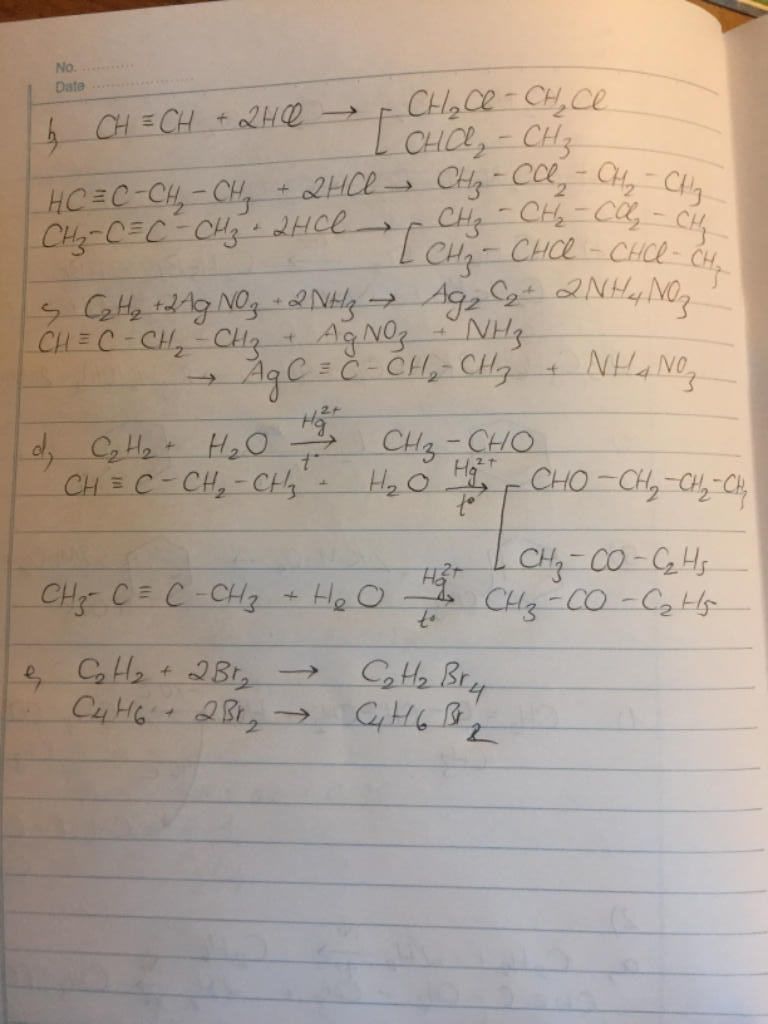 No. ............
Date ........................
b, CH≡CH + 2HCl → [ CH₂Cl – CH₂Cl
CHCl₂ – CH₃
HC≡C–CH₂–CH₃ + 2HCl → CH₃–CCl₂–CH₂–CH₃
CH₃–C≡C–CH₃ + 2HCl → [ CH₃–CH₂–CCl₂–CH₃
CH₃–CHCl–CHCl–CH₃
c, C₂H₂ + 2AgNO₃ + 2NH₃ → Ag₂C₂ + 2NH₄NO₃
CH≡C–CH₂–CH₃ + AgNO₃ + NH₃
→ AgC≡C–CH₂–CH₃ + NH₄NO₃
d, C₂H₂ + H₂O →[Hg²⁺, t°] CH₃–CHO
CH≡C–CH₂–CH₃ + H₂O →[Hg²⁺, t°] [ CHO–CH₂–CH₂–CH₃
CH₃–CO–C₂H₅
CH₃–C≡C–CH₃ + H₂O →[Hg²⁺, t°] CH₃–CO–C₂H₅
e, C₂H₂ + 2Br₂ → C₂H₂Br₄
C₄H₆ + 2Br₂ → C₄H₆Br₂